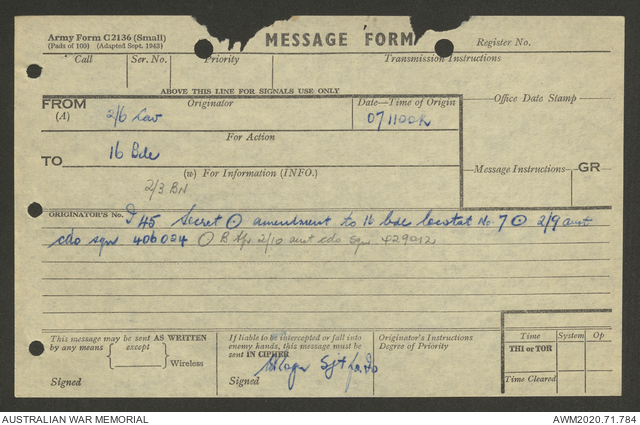 Army Form C2136 (Small)
(Pads of 100) (Adapted Sept. 1943)
MESSAGE FORM
Register No.
Call Ser. No. Priority Transmission Instructions
ABOVE THIS LINE FOR SIGNALS USE ONLY
FROM Originator Date—Time of Origin Office Date Stamp
(A) 2/6 Cav 071100K
For Action
TO 16 Bde
(w) For Information (INFO.) Message Instructions GR
2/3 BN
ORIGINATOR'S No. I 45 Secret ⊙ amendment to 16 bde locstat No. 7 ⊙ 2/9 aust
cdo sqn 406024 ⊙ B 2/10 aust cdo Sqn 429012
This message may be sent AS WRITTEN
by any means { except } Wireless
Signed
If liable to be intercepted or fall into
enemy hands, this message must be
sent IN CIPHER
Signed Sgt
Originator's Instructions
Degree of Priority
Time System Op
THI or TOR
Time Cleared
AUSTRALIAN WAR MEMORIAL AWM2020.71.784